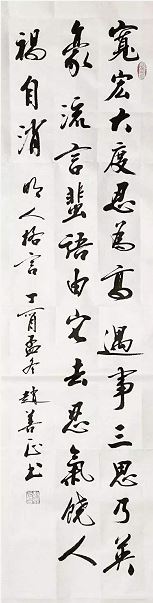 寬宏大度忍為高遇事三思乃英
豪流言蜚語由它去忍氣饒人
禍自消 明人格言 丁酉孟冬 趙善正书